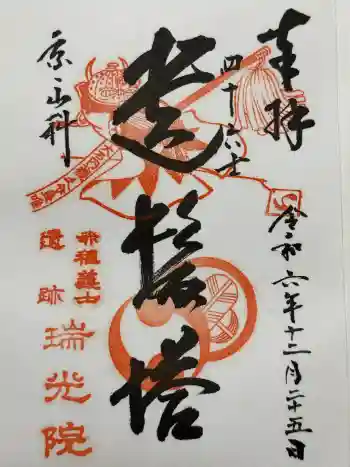 奉拝
令和六年十二月二十五日
四十六士
遺髪塔
京・山科
赤穂義士
遺跡
瑞光院